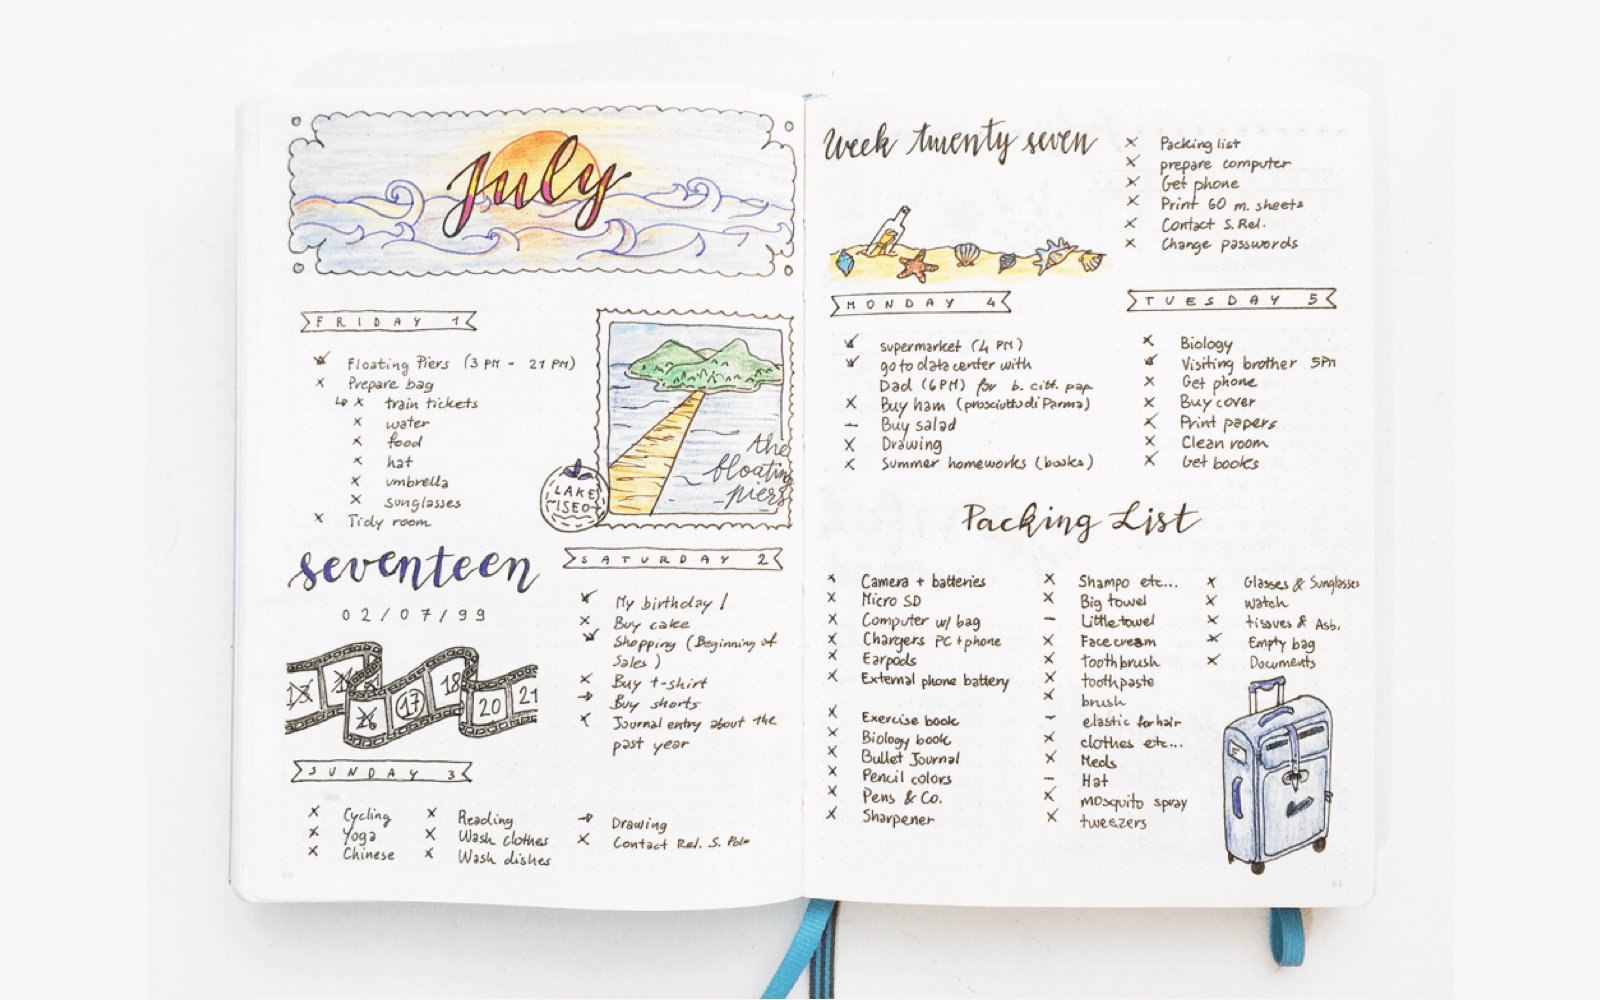 July
FRIDAY 1
Floating Piers (3 PM - 21 PM)
x Prepare bag
x train tickets
x water
x food
x hat
x umbrella
x sunglasses
x Tidy room
the
floating
piers
LAKE
ISEO
seventeen
02/07/99
17
18
20
21
SATURDAY 2
My birthday!
x Buy cake
Shopping (Beginning of
Sales)
x Buy t-shirt
→ Buy shorts
x Journal entry about the
past year
SUNDAY 3
x Cycling
x Yoga
x Chinese
x Reading
x Wash clothes
x Wash dishes
→ Drawing
x Contact Rel. S. Polo
60
Week twenty seven
x Packing list
x prepare computer
x Get phone
x Print 60 m. sheets
x Contact S. Rel.
x Change passwords
MONDAY 4
supermarket (4 PM)
go to data center with
Dad (6 PM) for b. citt. pap.
x Buy ham (prosciutto di Parma)
– Buy salad
x Drawing
x Summer homeworks (books)
TUESDAY 5
x Biology
Visiting brother 5PM
x Get phone
x Buy cover
x Print papers
x Clean room
x Get books
Packing List
x Camera + batteries
x Micro SD
x Computer w/ bag
x Chargers PC + phone
x Earpods
x External phone battery
x Exercise book
x Biology book
x Bullet Journal
x Pencil colors
x Pens & Co.
x Sharpener
x Shampo etc...
x Big towel
– Little towel
x Face cream
x toothbrush
x toothpaste
x brush
– elastic for hair
x clothes etc...
x Meds
– Hat
x mosquito spray
x tweezers
x Glasses & Sunglasses
x watch
x tissues & Asb.
x Empty bag
x Documents
61